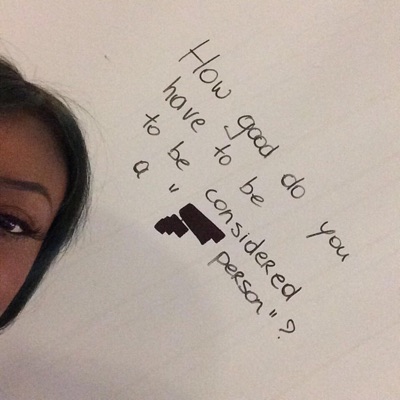 How good do you
have to be
to be considered
a "
person"?